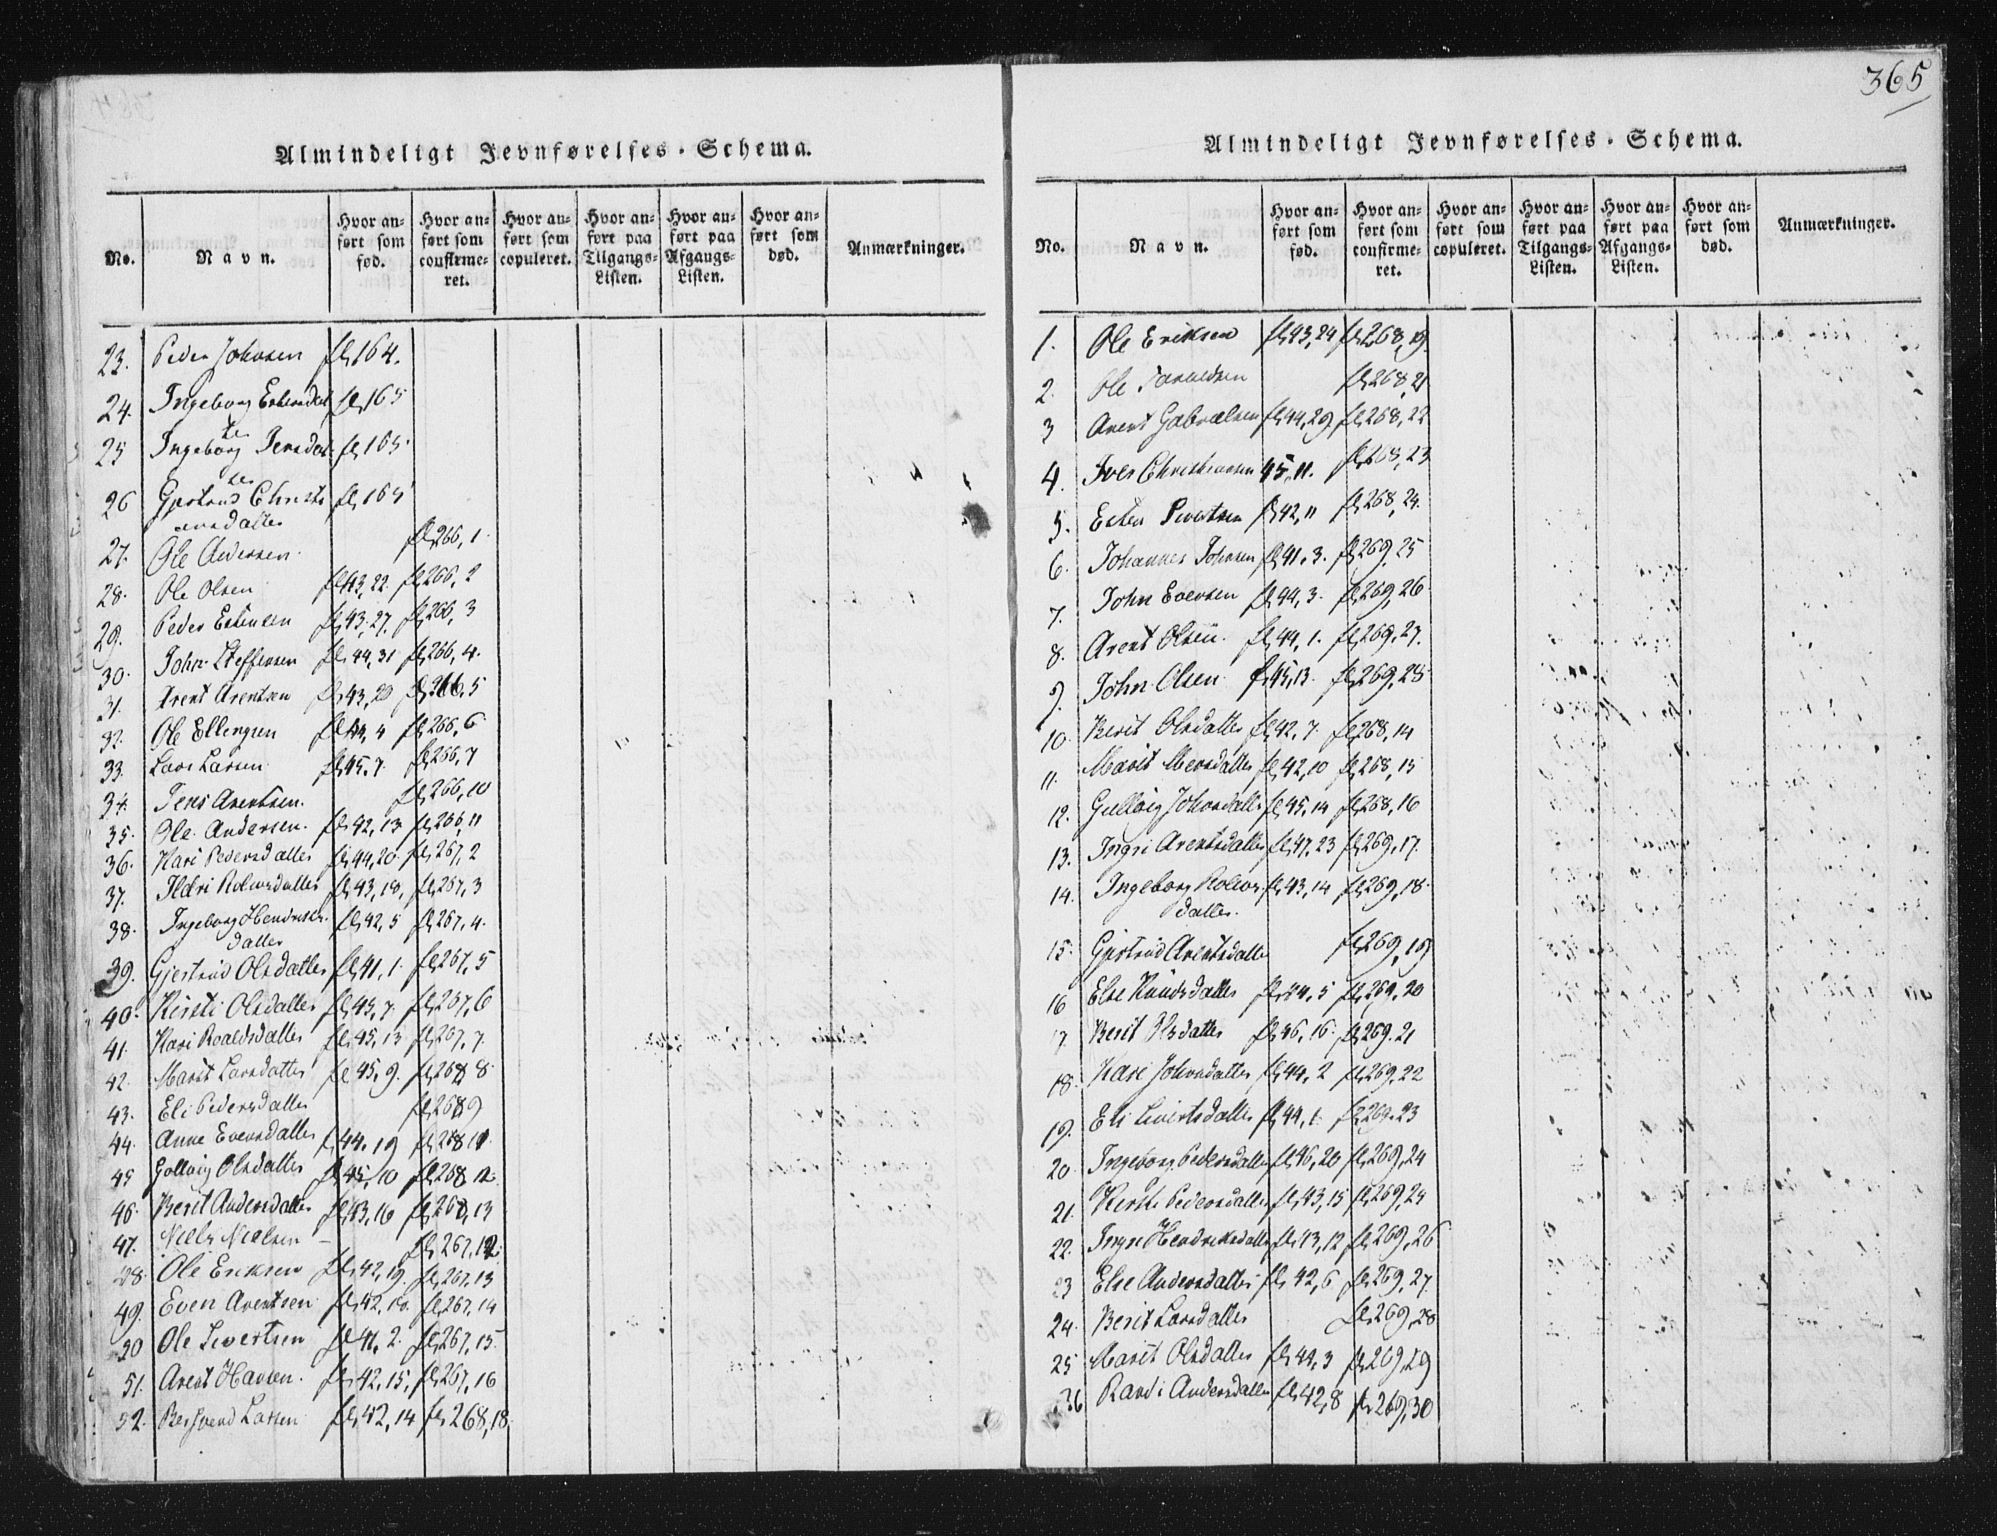 Almindeligt Jevnførelses-Schema.
No. Navn. Hvor anført som fød. Hvor anført som confirmeret. Hvor anført som copuleret. Hvor anført paa Tilgangs-Listen. Hvor anført paa Afgangs-Listen. Hvor anført som død. Anmærkninger.
23. Peder Johnsen fl 164.
24. Ingeborg Estensdat fl 165
ter
25 Ingeborg Jensdat fl 165.
ter
26 Gjertrud Christi fl 165
ansdatter
27. Ole Andersen. fl 266, 1.
28. Ole Olsen fl 43, 22. fl 266, 2
29. Peder Estensen fl 43, 27. fl 266, 3
30. John Steffensen fl 44, 31 fl 266, 4.
31. Arent Arentsen fl 43, 20 fl 266, 5
32. Ole Ellingsen fl 44, 4 fl 266, 6
33. Lars Larsen fl 45, 7. fl 266, 7
34. Jens Arentsen. fl 266, 10
35. Ole Andersen. fl 42, 13 fl 266, 11
36. Kari Pedersdatter fl 44, 20. fl 267, 2
37. Ildri Rolvsdatter fl 43, 18, fl 267, 3
38. Ingeborg Hendriks fl 42, 5 fl 267, 4.
datter
39. Gjertrud Olsdatter fl 41, 1. fl 267, 5
40. Kirsti Olsdatter fl 45, 7. fl 267, 6
41. Kari Roaldsdatter fl 45, 13 fl 267, 7.
42. Marit Larsdatter fl 45, 9. fl 268, 8
43. Eli Pedersdatter fl 268, 9
44. Anne Evensdatter fl 44, 19 fl 268, 11.
45 Gollvig Olsdatter fl 45, 10 fl 268, 12.
46. Berit Andersdatter fl 43, 16 fl 268, 13
47. Niels Nielsen – fl 267, 12.
48. Ole Eriksen fl 42, 19. fl 267, 13
49. Even Arentsen fl 42, 18. fl 267, 14
50 Ole Sivertsen fl 41, 2. fl 267, 15.
51. Arent Hansen. fl 42, 15, fl 267, 16
52. Bersvend Larsen fl 42, 14 fl 268, 18.
365
Almindeligt Jevnførelses-Schema.
No. Navn. Hvor anført som fød. Hvor anført som confirmeret. Hvor anført som copuleret. Hvor anført paa Tilgangs-Listen. Hvor anført paa Afgangs-Listen. Hvor anført som død. Anmærkninger.
1. Ole Eriksen fl 43, 24 fl 268, 19.
2. Ole fl 268, 21
3 Arent Gabrielsen fl 44, 29 fl 268, 22
4. Iver Christiansen 45, 11. fl 268, 23
5. Esten Sivertsen fl 42, 11 fl 268, 24.
6. Johannes Johnsen fl 41, 3. fl 269, 25
7. John Evensen fl 44, 3. fl 269, 26
8. Arent Olsen. fl 44, 1. fl 269, 27.
9. John Olsen fl 45, 13. fl 269, 28
10. Berit Olsdatter fl 42, 7. fl 268, 14
11. Marit fl 42, 10 fl 268, 15
12. Gullvig Johnsdatter fl 45, 14 fl 268, 16
13. Ingri Arentsdatter fl 47, 23 fl 269, 17.
14. Ingeborg Rolvs fl 43, 14 fl 269, 18.
datter.
15. Gjertrud Arentsdatter fl 269, 19
16 Else Knudsdatter fl 44, 5 fl 269, 20
17 Berit Olsdatter fl 46, 16. fl 269. 21
18. Kari Johnsdatter fl 44, 2 fl 269, 22
19. Eli Sivertsdatter fl 44, 1. fl 269, 23
20. Ingeborg Pedersdatter fl 46, 20 fl 269, 24
21. Kirsti Pedersdatter fl 43, 15 fl 269, 25
22. Ingri Hendriksdatter fl 43, 12 fl 269, 26
23 Else Andersdatter fl 42, 6 fl 269, 27.
24. Berit Larsdatter fl 269, 28
25 Marit Olsdatter fl 44, 3 fl 269, 29
26 Randi Andersdatter fl 42, 8 fl 269, 30